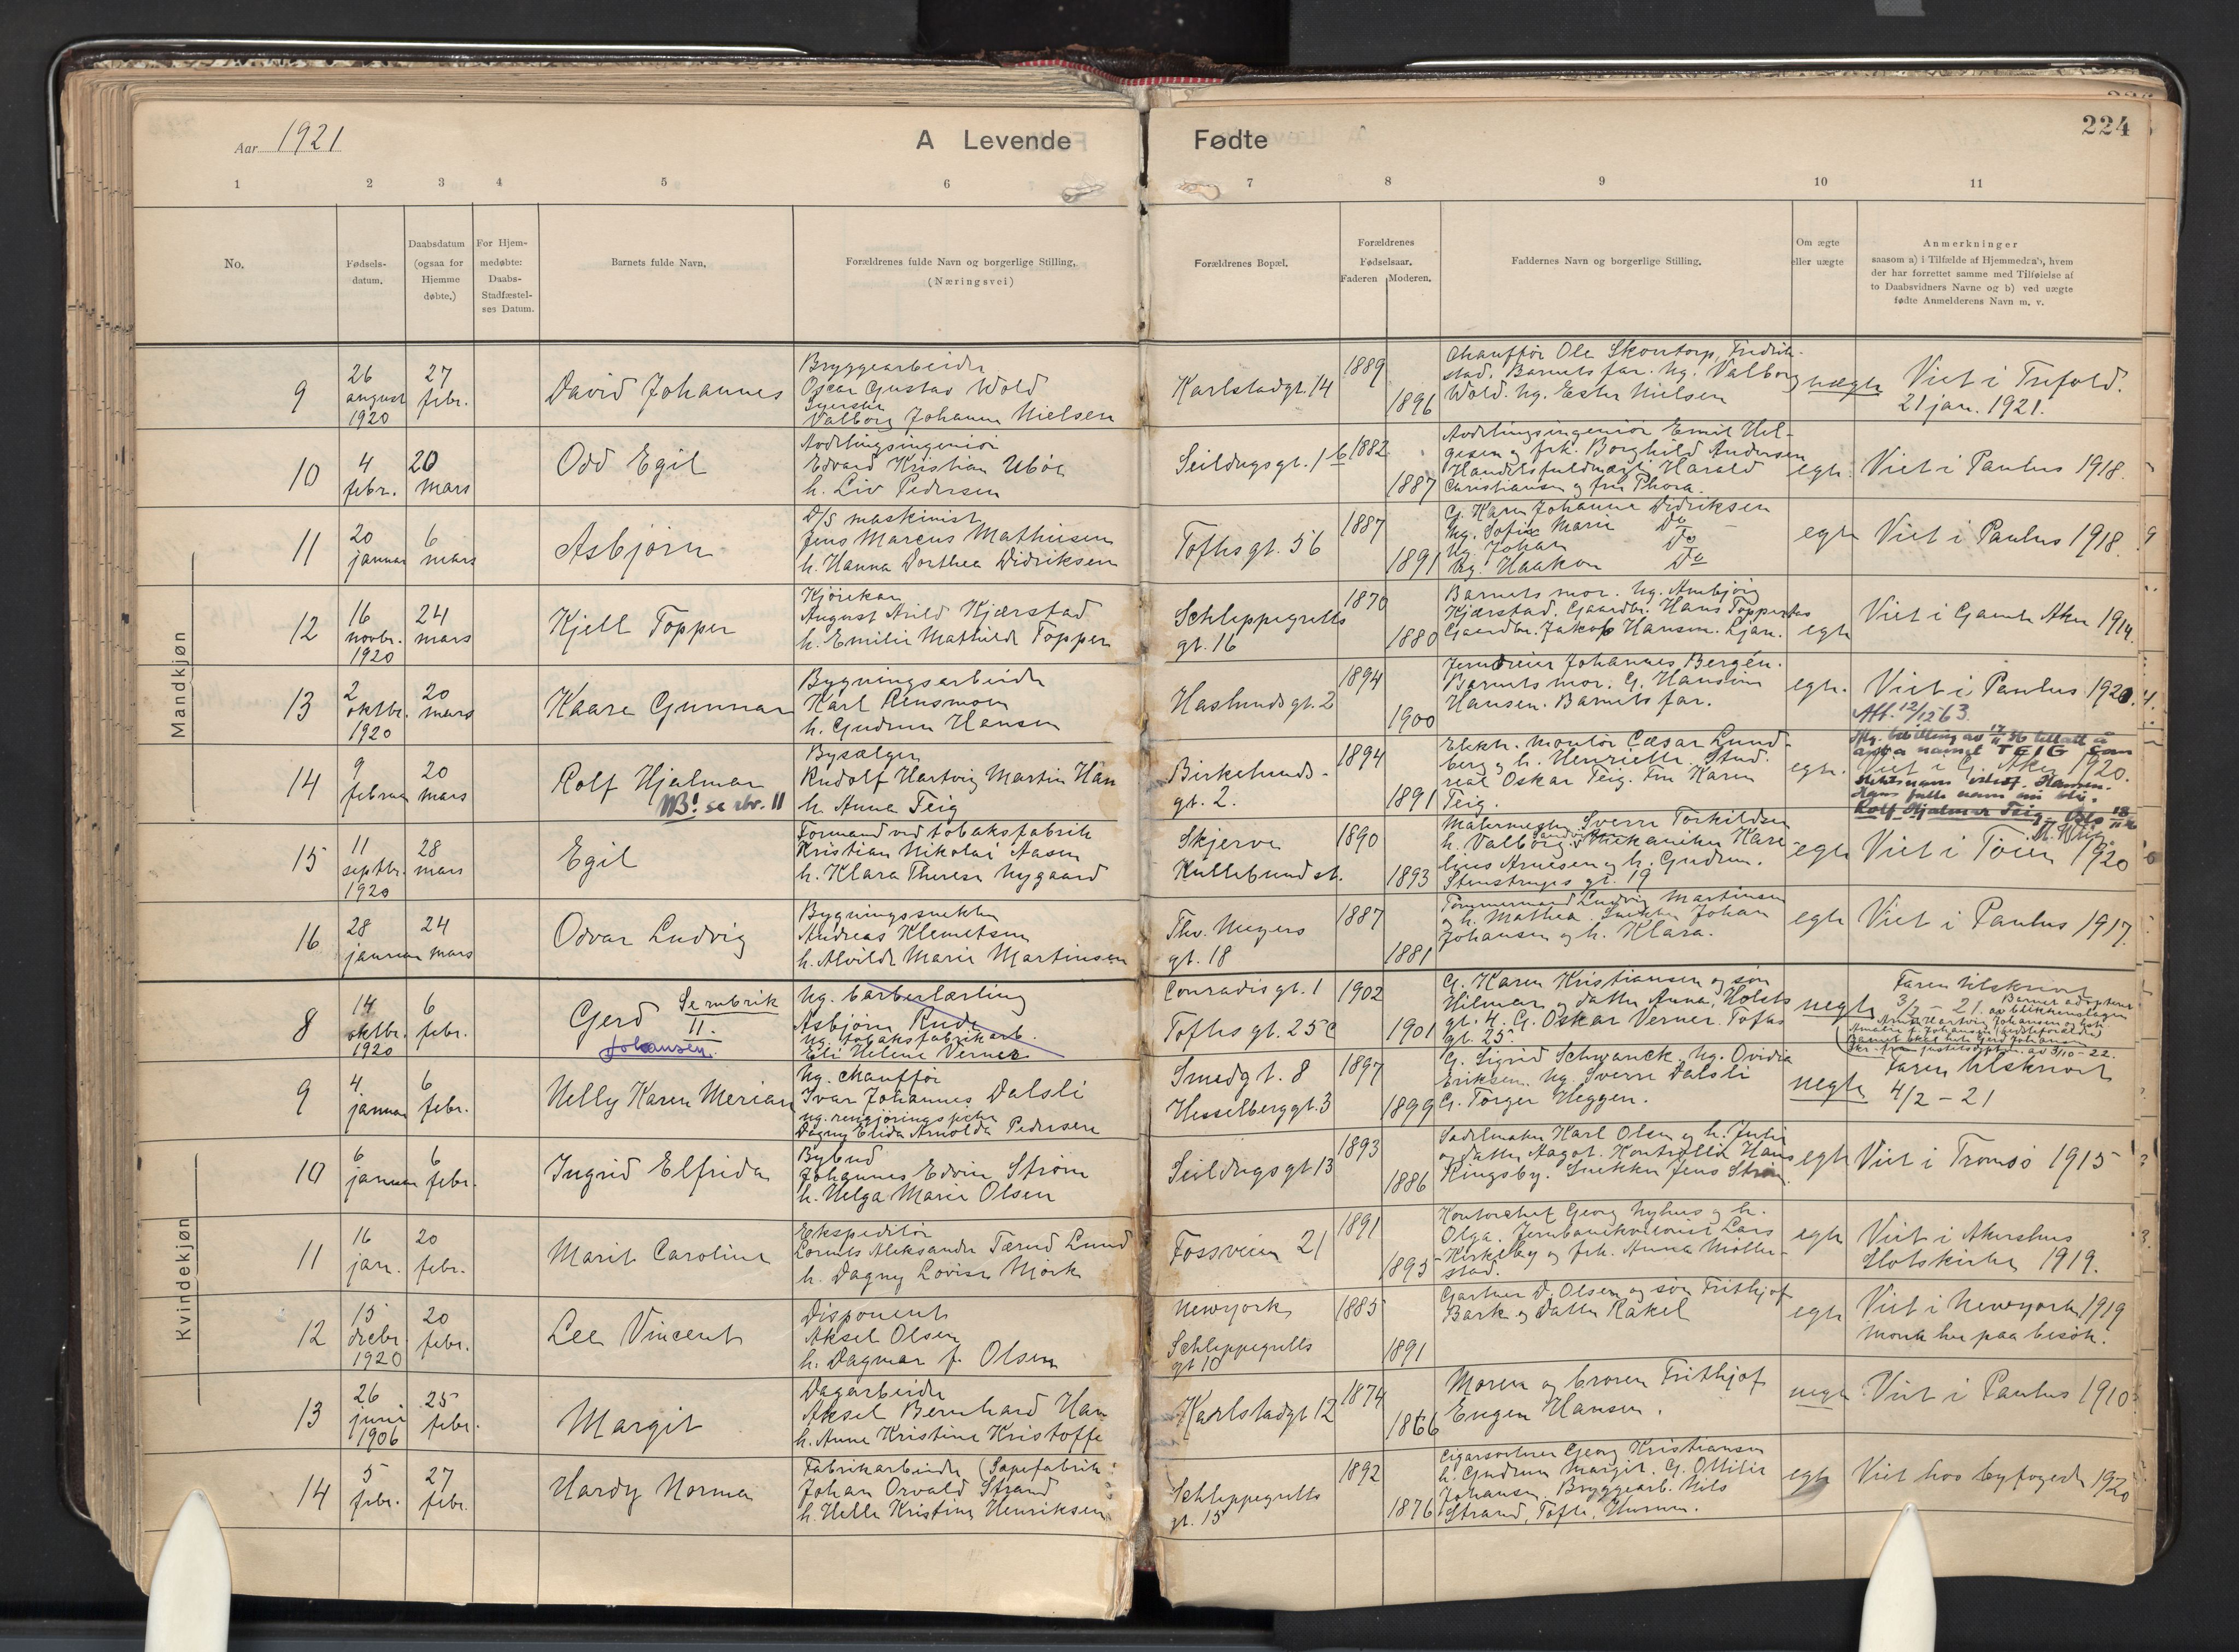 Aar 1921
A Levende Fødte
224
1 2 3 4 5 6 7 8 9 10 11
No.
Fødsels-
datum.
Daabsdatum
(ogsaa for
Hjemme
døbte.)
For Hjem-
medøbte:
Daabs-
Stadfæstel-
ses Datum.
Barnets fulde Navn.
Forældrenes fulde Navn og borgerlige Stilling.
(Næringsvei)
Forældrenes Bopæl.
Forældrenes
Fødselsaar.
Faderen Moderen.
Faddernes Navn og borgerlige Stilling.
Om ægte
eller uægte
Anmerkninger
saasom a) i Tilfælde af Hjemmedaab, hvem
der har forrettet samme med Tilføielse af
to Daabsvidners Navne og b) ved uægte
fødte Anmelderens Navn m. v.
Mandkjøn
9
26
august
1920
27
febr.
David Johannes
Bryggearbeider
Oscar Gustav Wold
Syerske
Valborg Johanna Nielsen
Karlstadgt. 14
1889
1896
Chauffør Ole Skontorp, Fredrik-
stad. Barnets far. Ug. Valborg
Wold. Ug. Ester Nielsen
uægte
Viet i Trefold.
21 jan. 1921.
10
4
febr.
20
mars
Odd Egil
Avdelingsingeniør
Edvard Kristian Ubøe
h. Liv Pedersen
Seildugsgt. 16
1882
1887
Avdelingsingeniør Emil Hel-
gesen og frk. Borghild Andersen
Handelsfuldmægt. Harald
Christiansen og fru Thora.
egte.
Viet i Paulus 1918.
11
20
januar
6
mars
Asbjørn
D/S maskinist
Jens Marcus Mathiesen
h. Hanna Dorthea Didriksen
Toftes gt. 56
1887
1891
G. Karen Johanne Didriksen
Ug. Sofie Marie Do
Ug. Johan Do
Ug. Haakon Do
egte
Viet i Paulus 1918.
12
16
novbr.
1920
24
mars
Kjell Topper
Kjørekar
August Arild Kjærstad
h. Emilie Mathilde Topper
Schleppegrells
gt. 16
1870
1880
Barnets mor. Ug. Annbjørg
Kjærstad. Gaardbr. Hans Topperaas
Gaardbr. Jakob Hansen. Ljan.
egte
Viet i Gamle Aker 1914.
13
2
oktbr.
1920
20
mars
Kaare Gunnar
Bygningsarbeider
Karl Rensmoen
h. Gudrun Hansen
Haslunds gt. 2
1894
1900
Jerndreier Johannes Bergén.
Barnets mor. G. Hansine
Hansen. Barnets far.
egte.
Viet i Paulus 1920.
Att. 12/12 63.
14
9
februar
20
mars
Rolf Hjalmar
NB! se rbr. 11
Bysælger
Rudolf Hartvig Martin Han
h. Anna Teig
Birkelunds-
gt. 2.
1894
1891
Elektr. montør Cæsar Lund-
berg og h. Henriette. Stud.
real Oskar Teig. Fru Karen
Teig.
egte.
Iflg. bevilling av 17/11 36 tillatt å
anta navnet TEIG som
Viet i G. Aker 1920.
slektsnavn istedf. Hansen.
Hans fulle navn nu bli:
Rolf Hjalmar Teig. Oslo 18/11 36
15
11
septbr.
1920
28
mars
Egil
Formand ved tobaksfabrik
Kristian Nikolai Aasen
h. Klara Therese Nygaard
Skjerve
Kullebundst.
1890
1893
Malermester Sverre Torkildsen
h. Valborg. Mekaniker Kare-
lius Arnesen og h. Gudrun.
Stenstrups gt. 19
egte
Viet i Tøien 1920
16
28
januar
24
mars
Odvar Ludvig
Bygningssnekker
Andreas Klemetsen
h. Alvilde Marie Martinsen
Thv. Meyers
gt. 18
1887
1881
Tømmermand Ludvig Martinsen
og h. Mathea. Snekker Johan
Johansen og h. Klara.
egte
Viet i Paulus 1917.
Kvindekjøn
8
14
oktbr.
1920
6
febr.
Gerd
Se rubrik
11.
Johansen.
Ug. barberlærling
Asbjørn Rude
ug. tobaksfabrikarb.
Eli Helene Verner
Conradis gt. 1
Toftes gt. 25c
1902
1901
G. Karen Kristiansen og søn
Hilmar og datter Anna, Holsts
gt. 4. G. Oskar Verner. Toftes
gt. 25.
uegte
Faren tilskrevet
3/2 - 21.
Barnet adopteret
av blikkenslager
Arne Hartvig Johansen og hustru
Amalie f. Johansen (bedsteforældre)
Barnet skal hete Gerd Johansen
Skr. fra justitsdeptm. av 3/10-22.
9
4
januar
6
febr.
Nelly Karen Merian
Ug. chauffør
Ivar Johannes Dalsli
ug. rengjøringspike
Dagny Elida Arnolda Pedersen
Smedgt. 8
Hesselberggt. 3
1897
1899
G. Sigrid Schwanck. Ug. Ovidia
Eriksen. Ug. Sverre Dalsli
G. Torger Heggen.
uegte
Faren tilskrevet
4/2 - 21
10
6
januar
6
febr.
Ingrid Elfrida
Bybud
Johannes Edvin Strøm
h. Helga Marie Olsen
Seildugsgt 13
1893
1886
Sadelmaker Karl Olsen og h. Julie
og datter Aagot. Kontrollør Hans
Ringsby. Snekker Jens Strøm.
egte
Viet i Tromsø 1915
11
16
jan.
20
febr.
Marit Caroline
Ekspeditør
Cornels Aleksander Tærud Lund
h. Dagny Lovise Mørk
Fossveien 21
1891
1895
Kontorchef Georg Nyhus og h.
Olga. Jernbanekvitorist Lars
Kirkeby og frk. Anna Møller-
stad.
egte
Viet i Akershus
Slotskirke 1919.
12
15
decbr.
1920
20
febr.
Lee Vincent
Disponent
Aksel Olsen
h. Dagmar f. Olsen
Newyork
Schleppegrells
gt 10
1885
1891
Gartner D. Olsen og søn Frithjof
Bark og datter Rakel
egte
Viet i Newyork 1919
Moren her paa besøk.
13
26
juni
1906
25
febr.
Margit
Dagarbeider
Aksel Bernhard Han
h. Anne Kristine Kristoffe
Karlstadgt 12
1874
1866
Moren og broren Frithjof
Eugen Hansen.
uegte
Viet i Paulus 1910
14
5
febr.
27
febr.
Hardy Norma
Fabrikarbeider (Sæpefabrik
Johan Orvald Strand
h. Helle Kristine Henriksen
Schleppegrells
gt. 15
1892
1876
Cigarsorterer Georg Kristiansen
h. Gudrun Margit. G. Ottilie
Johansen. Bryggearb. Nils
Strand, Tofte, Hurum.
egte
Viet hos byfogden 1920